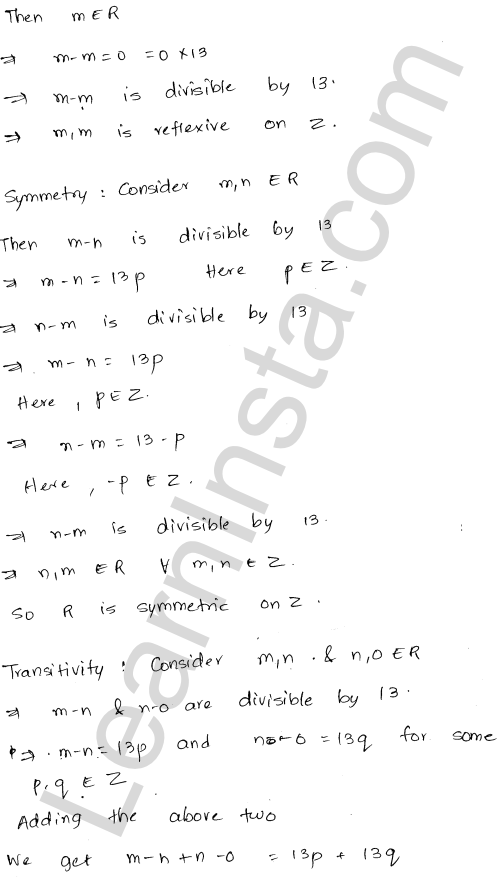 Then m ∈ R
⇒ m-m = 0 = 0 × 13
⇒ m-m is divisible by 13.
⇒ m,m is reflexive on Z.
Symmetry : Consider m,n ∈ R
Then m-n is divisible by 13
⇒ m-n = 13p Here p ∈ Z.
⇒ n-m is divisible by 13
⇒ m-n = 13p
Here , p ∈ Z.
⇒ n-m = 13-p
Here , -p ∈ Z.
⇒ n-m is divisible by 13.
⇒ n,m ∈ R ∀ m,n ∈ Z.
So R is symmetric on Z.
Transitivity : Consider m,n . & n,o ∈ R
⇒ m-n & n-o are divisible by 13.
⇒ . m-n = 13p and n-o = 13q for some
p,q ∈ Z
Adding the above two
We get m-n+n-o = 13p + 13q
LearnInsta.com